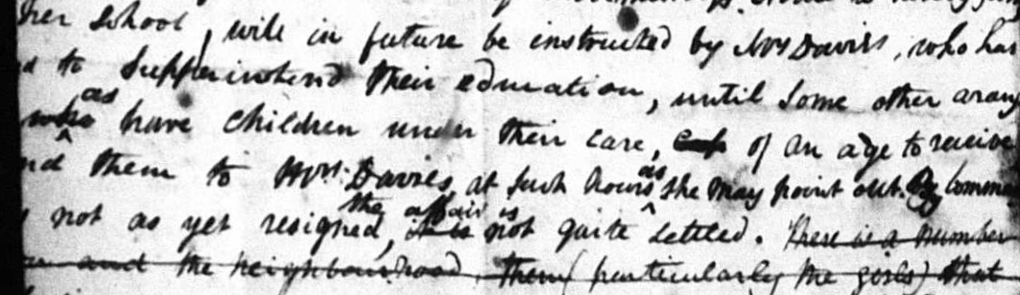 her school, will in future be instructed by Mrs Davies, who has
d to Supperintend their education, until Some other arang
who as have children under their care, of an age to receive
nd them to Mrs. Davies, at such hours as she may point out. By Comma
not as yet resigned, it is the affair is not quite settled. There is a number
and the neighbourhood, them (particularly the girls) that